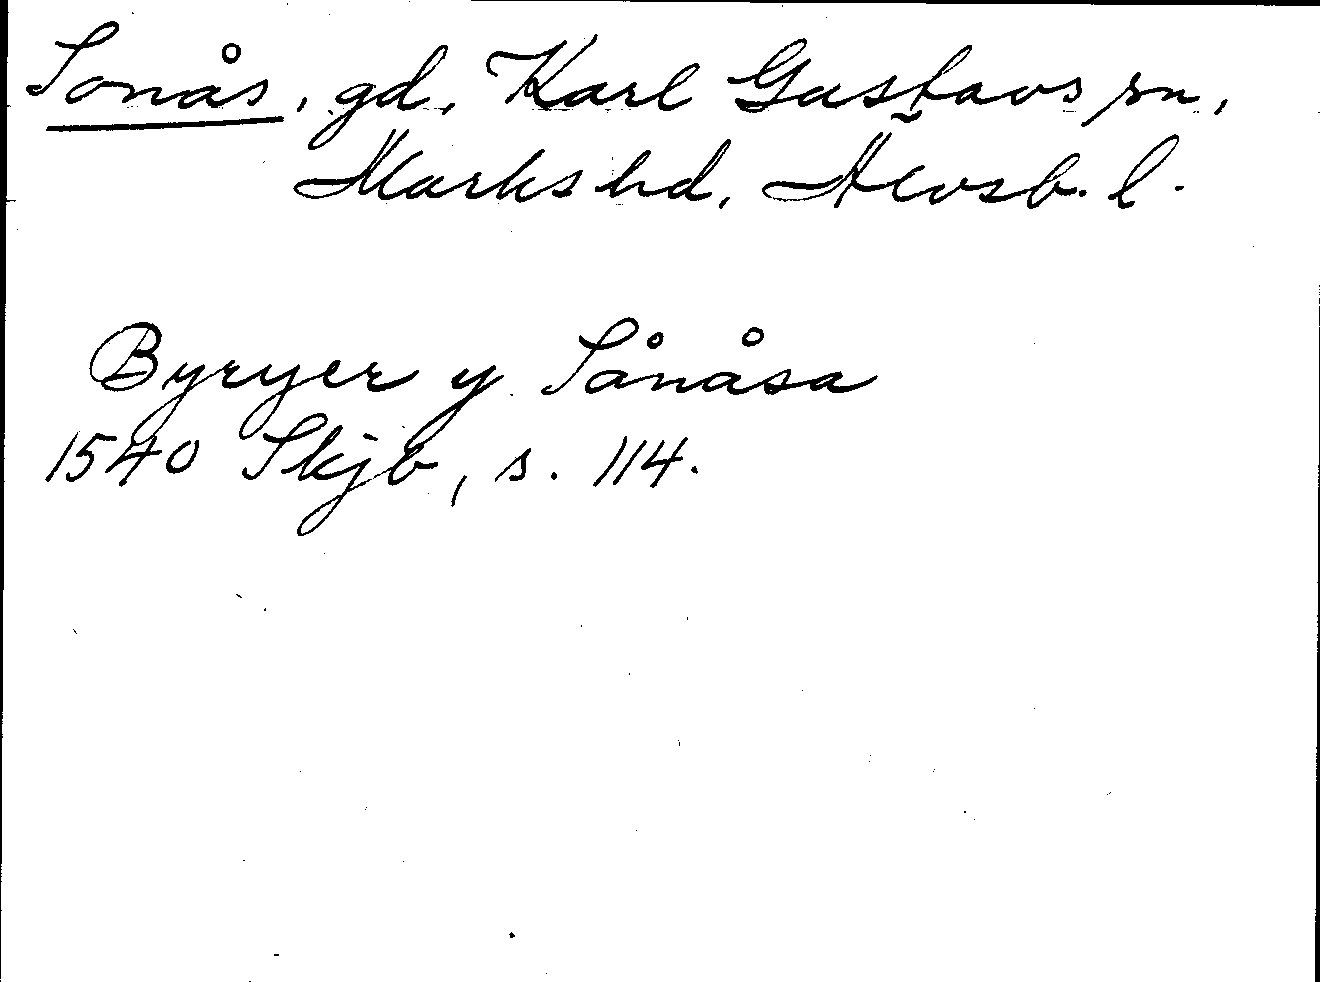 Sonås, gd, Karl Gustavs sn,
Marks hd, Älvsb. l.
Byryer y Sånåsa
1540 Skjb, s. 114.